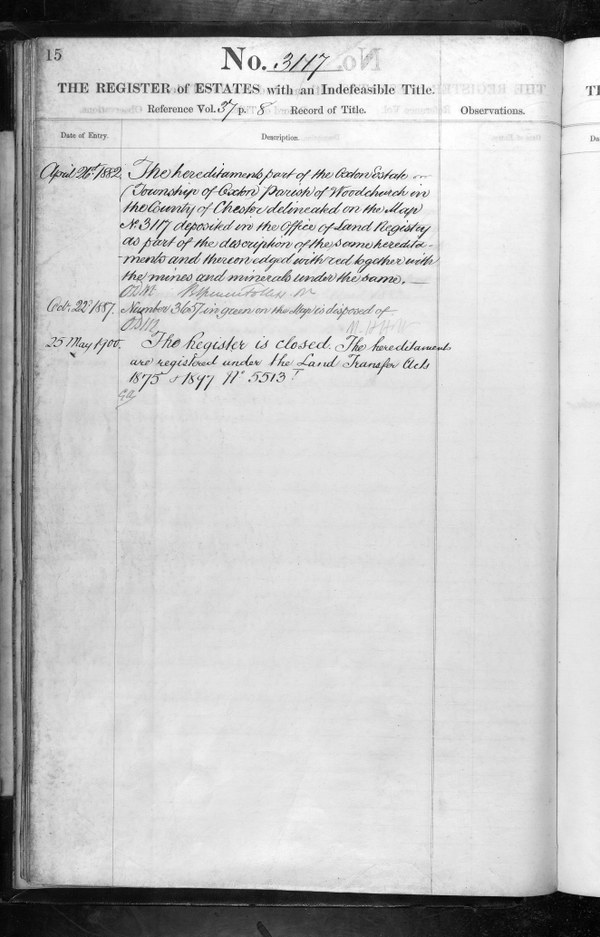 15
No. 3117
THE REGISTER of ESTATES with an Indefeasible Title.
Reference Vol. 37 p. 8 Record of Title.
Observations.
Date of Entry.
Description.
April 26th 1882. The hereditaments part of the Oxton Estate in
Township of Oxton Parish of Woodchurch in
the County of Chester delineated on the Map
No. 3117 deposited in the Office of Land Registry
as part of the description of the same heredita-
ments and thereon edged with red together with
the mines and minerals under the same. —
Oct. 22d 1887. Number 3657 in green on the Map is disposed of
25 May 1900. The Register is closed. The hereditaments
are registered under the Land Transfer Acts
1875 & 1897 No 5513